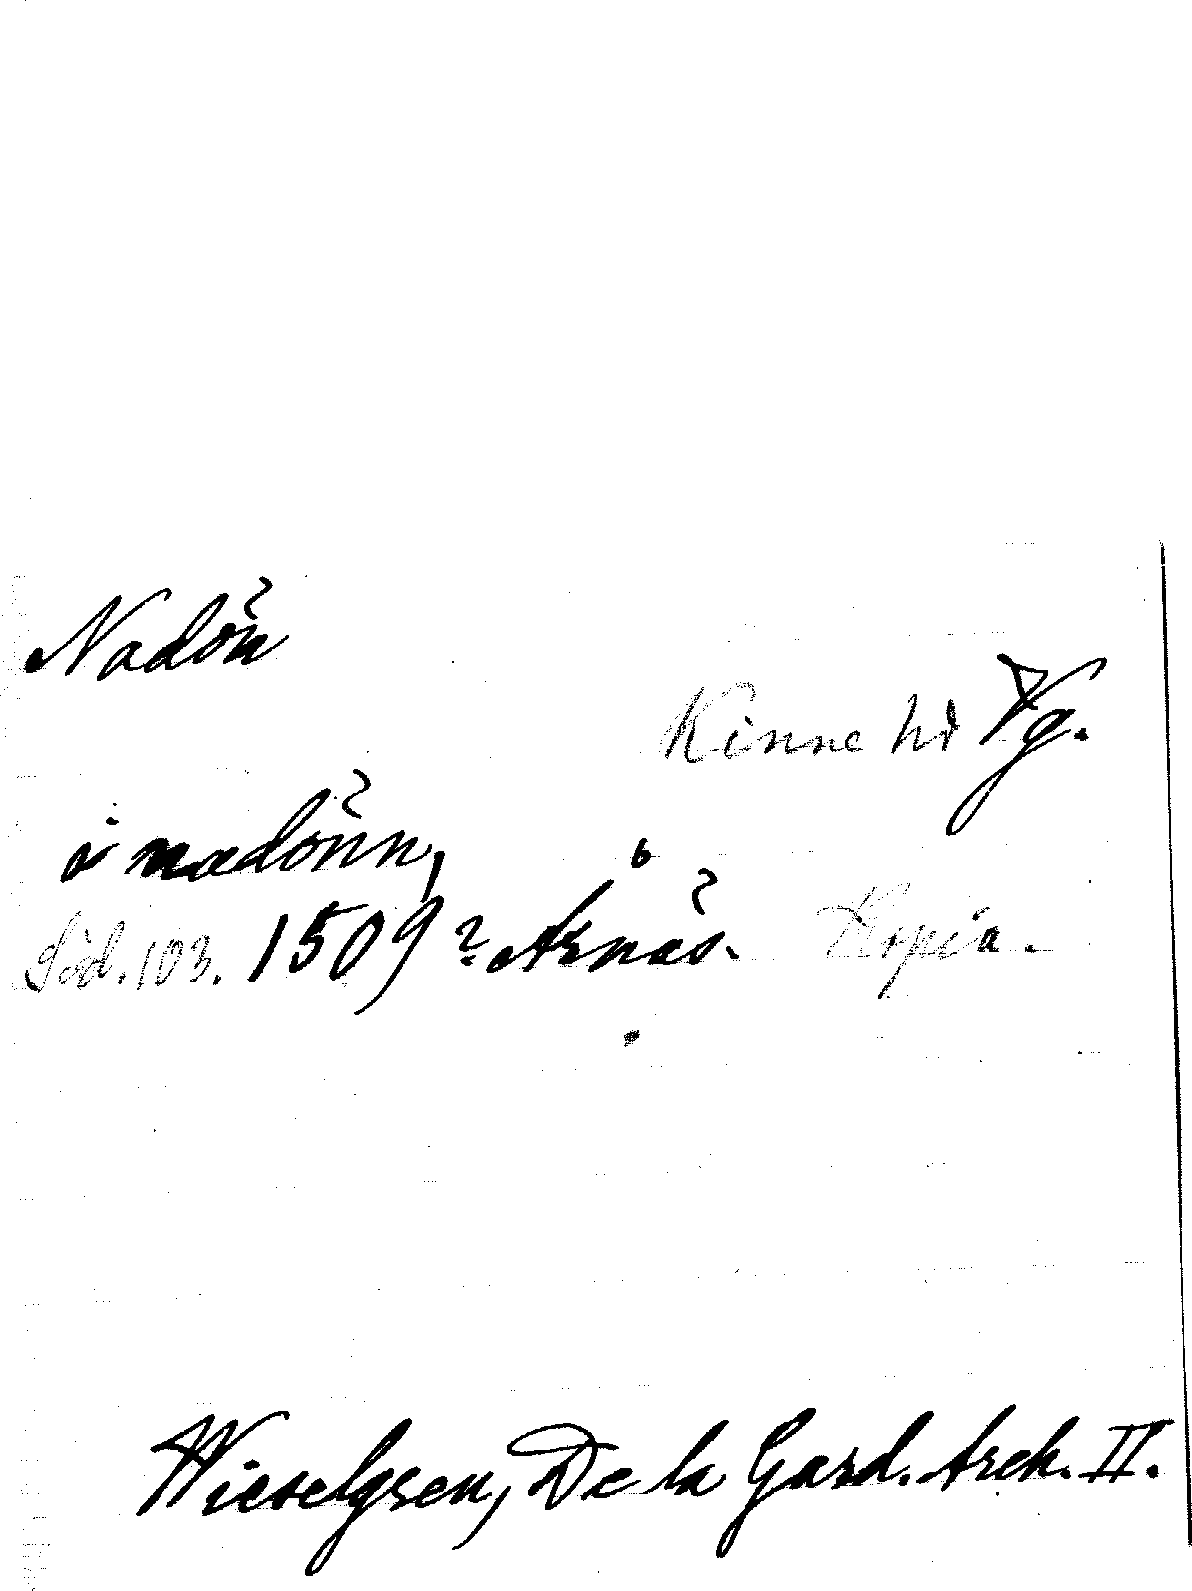 Nadön
Kinne hd Vg.
i nadönn,
Söd. 103. 1509? Årnäs. Kopia.
Wieselgren, De la Gard. Arch. II.